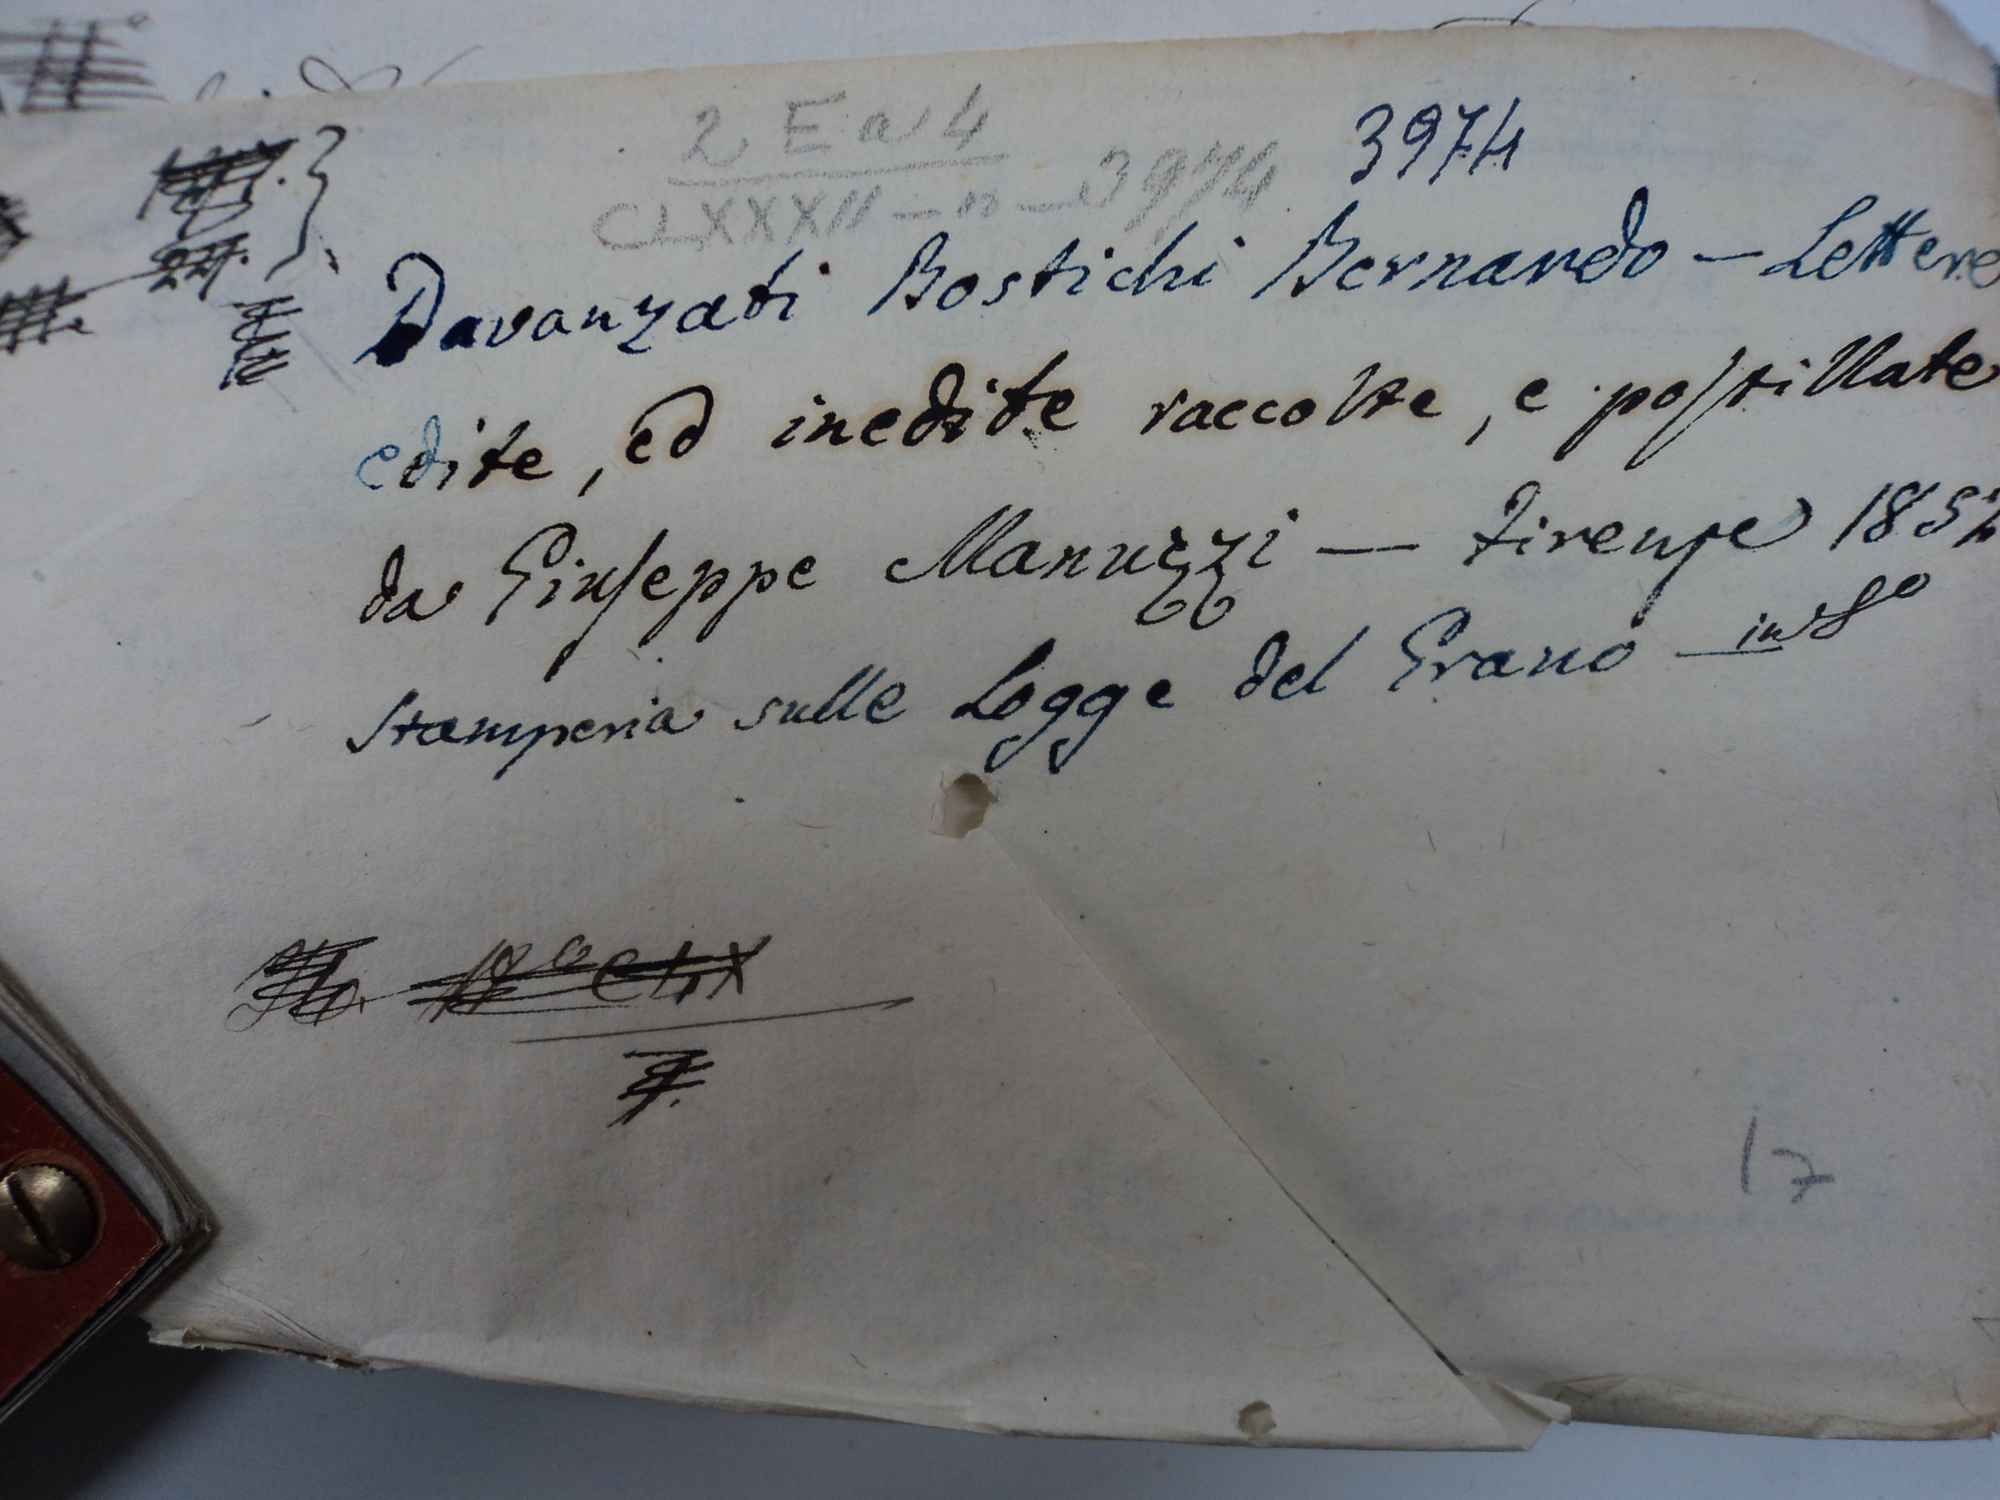 2 E a 4
CLXXXII - n - 3974
3974
Davanzati Bostichi Bernardo - Lettere
edite, ed inedite raccolte, e postillate
da Giuseppe Manuzzi - Firenze 1852
Stamperia sulle Logge del Grano - in 8º
17